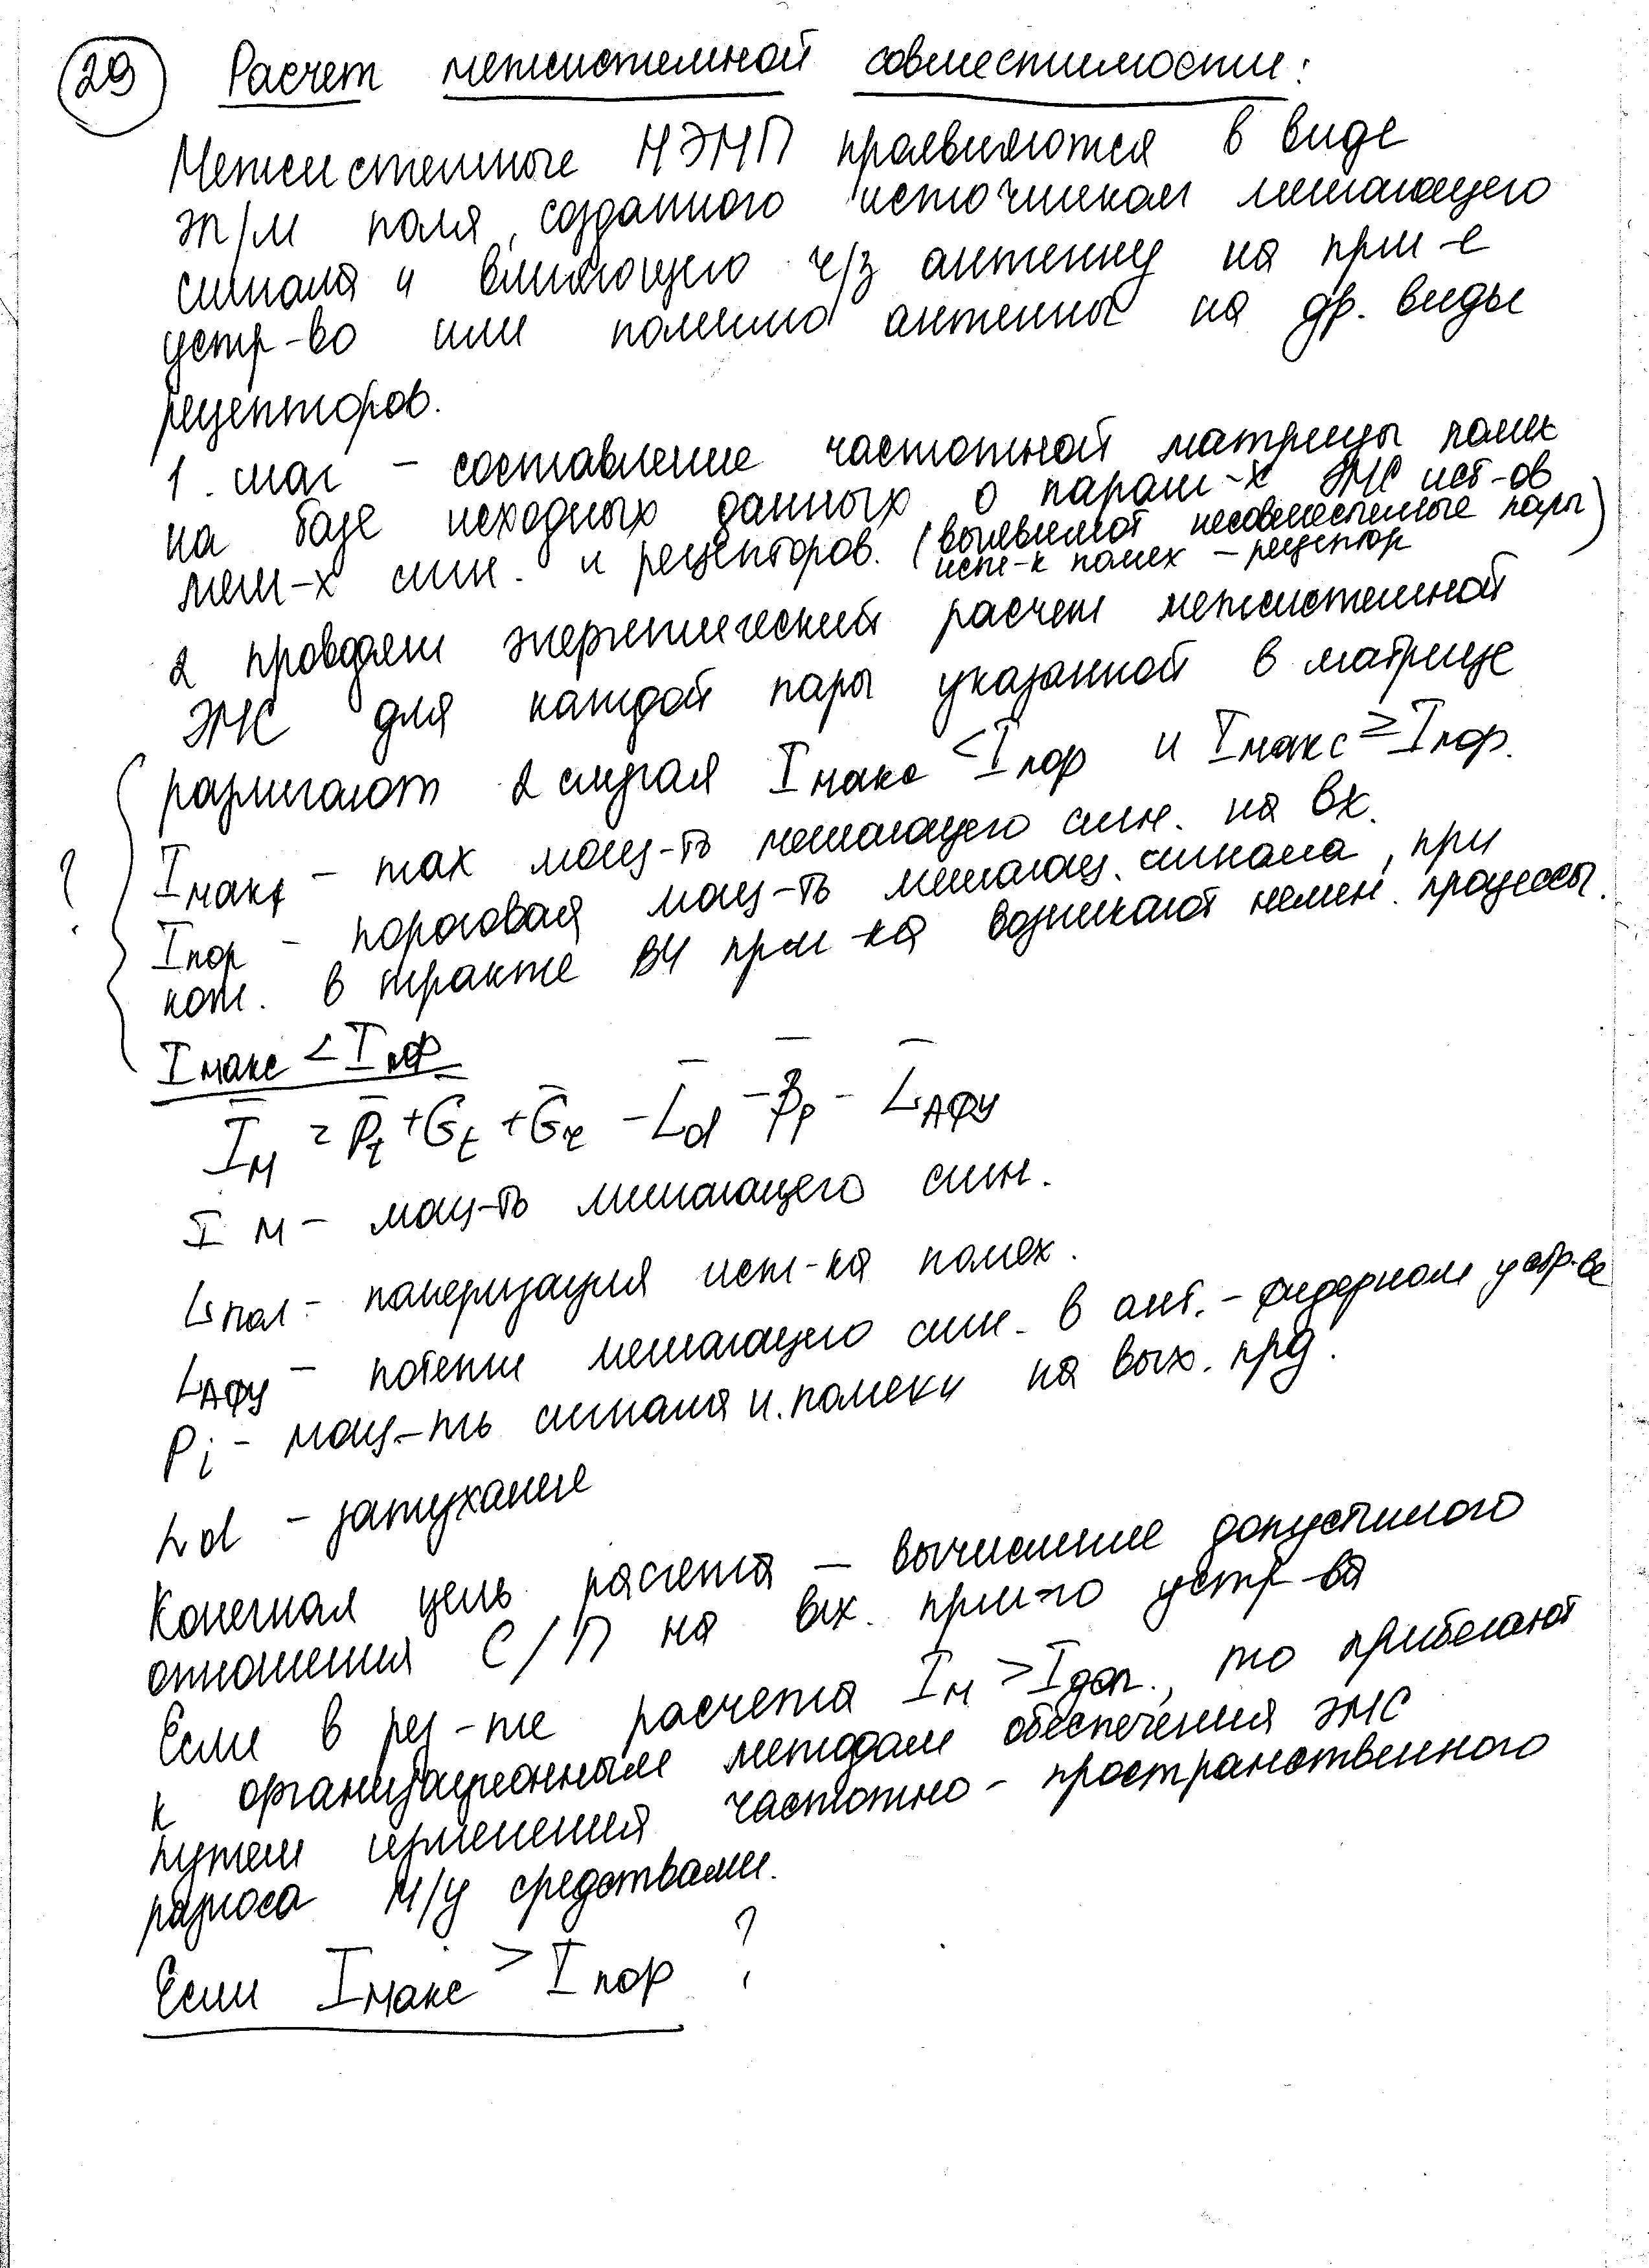 29 Расчет межсистемной совместимости:
Межсистемные НЭМП проявляются в виде
эл/м поля, созданного источником мешающего
сигнала и влияющего ч/з антенну на прм-е
устр-во или помимо антенны на др. виды
рецепторов.
1. шаг – составление частотной матрицы помех
на базе исходных данных о парам-х ЭМС ист-ов
меш-х сиг. и рецепторов. (выявляют несовместимые пары
ист-к помех – рецептор)
2 проводят энергетический расчет межсистемной
ЭМС для каждой пары указанной в матрице
различают 2 случая Iмакс < Iпор и Iмакс ≥ Iпор.
? Iмакс – max мощ-ть мешающего сиг. на вх.
Iпор – пороговая мощ-ть мешающ. сигнала, при
кот. в тракте ВЧ прм-ка возникают нелин. процессы.
Iмакс < Iпор
Iм = Pt + Gt + Gr – Ld – Bp – LАФУ
I м – мощ-ть мешающего сиг.
Lпол – поляризация ист-ка помех.
LАФУ – потери мешающего сиг. в ант.-фидерном устр-ве
Pi – мощ-ть сигнала и. помехи на вых. прд.
Ld – затухание
Конечная цель расчета – вычисление допустимого
отношения С/П на вх. прм-го устр-ва
Если в рез-те расчета Iм > Iдоп., то прибегают
к организационным методам обеспечения ЭМС
путем изменения частотно-пространственного
разноса м/у средствами.
Если Iмакс > Iпор ?